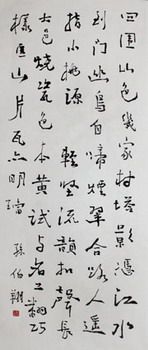 四围山色几家村塔影凭江水
到门幽鸟自啼烟翠合路人遥
指小桃源 轻坚流韵扣声长
土色烧瓷色本黄试与者工翻巧
样匡山片瓦亦明珰 孙伯翔